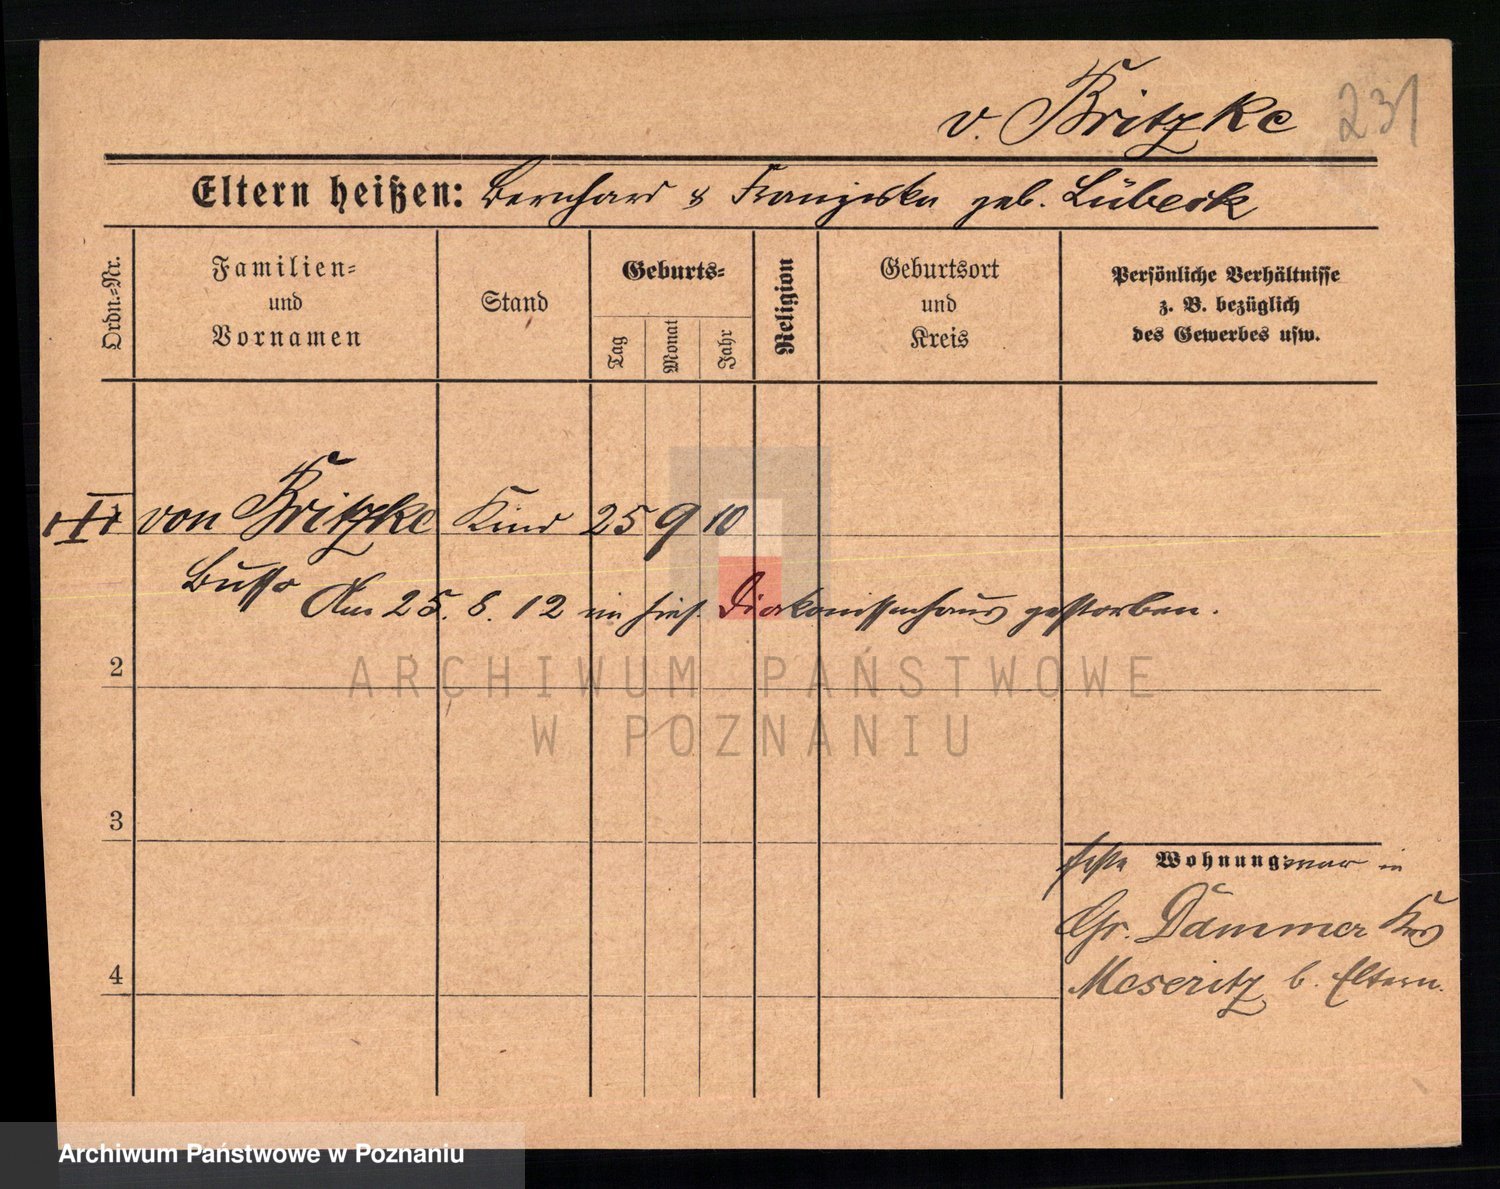 v. Britzke 231
Eltern heißen: Bernhard & Franziska geb. Lübeck
Ordn.-Nr.
Familien-
und
Vornamen
Stand
Geburts-
Tag
Monat
Jahr
Religion
Geburtsort
und
Kreis
Persönliche Verhältnisse
z. B. bezüglich
des Gewerbes usw.
von Britzke Kind 25 9 10
Busso
Am 25. 8. 12 im hies. Diakonissenhaus gestorben.
2
3
4
feste Wohnung war in
Gr. Dammer Krs
Meseritz b. Eltern.
ARCHIWUM PAŃSTWOWE
W POZNANIU
Archiwum Państwowe w Poznaniu